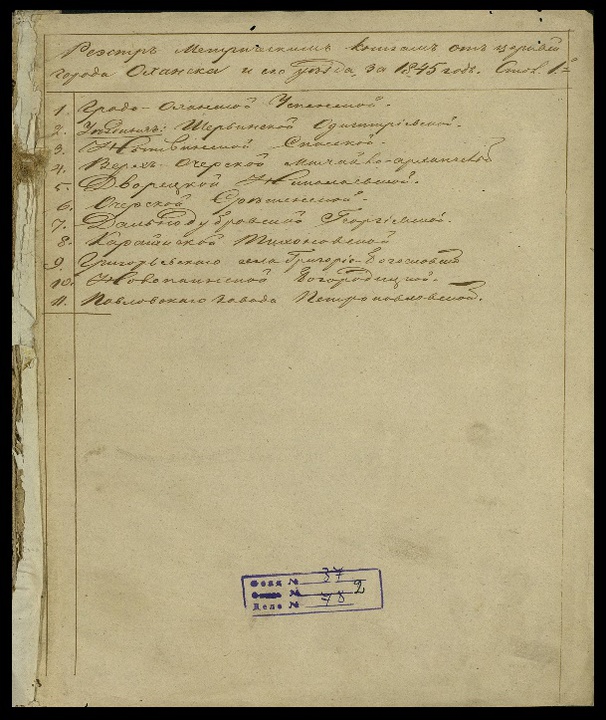 Реэстръ Метрическимъ книгамъ отъ церквей
города Оханска и его уѣзда, за 1845 годъ. Отд. 1-е
1. Градо-Оханской Успенской.
2. Шерьинской Одигитріевской.
3. Нытвинской Спасской.
4. Верхъ-Очерской Михайло-архангельской
5. Дворецкой Николаевской.
6. Очерской Стрѣтенской.
7. Дальнодубровской Георгіевской.
8. Карагайской Тихоновской
9. села Григоріе-Богословской
10. Новопаинской Богородицкой.
11. Павловскаго завода Петропавловской.
Фонд № 37
Опись № 2
Дело № 78